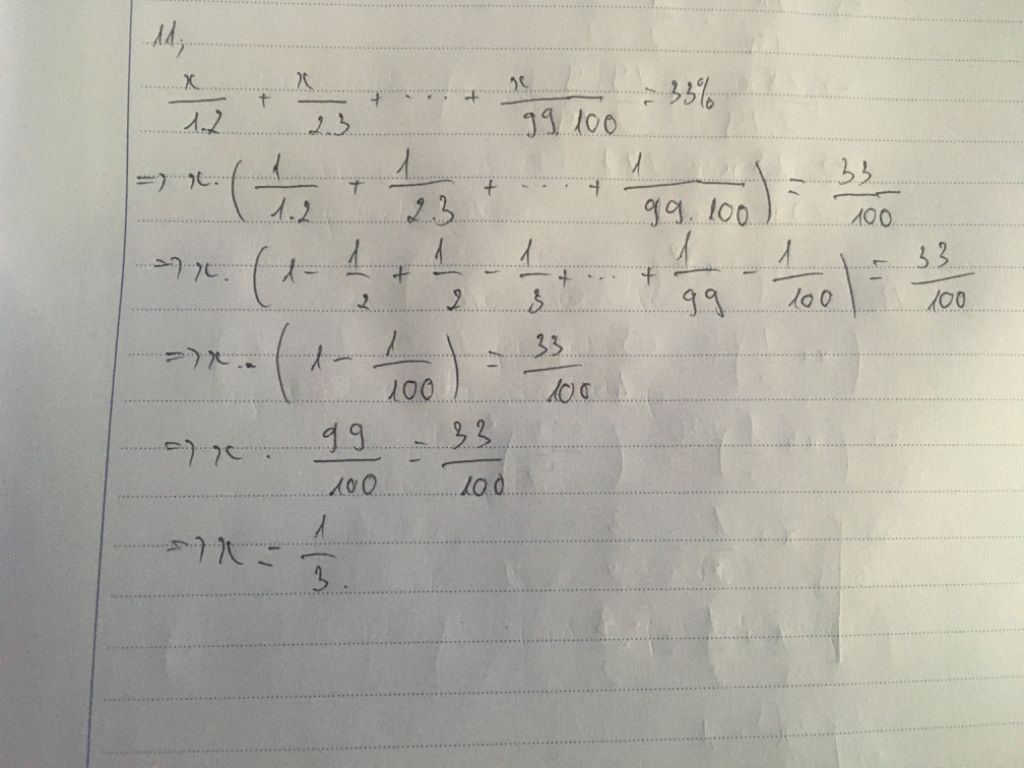 11,
x/1.2 + x/2.3 + .... + x/99.100 = 33%
=> x. (1/1.2 + 1/2.3 + .... + 1/99.100) = 33/100
=> x. (1 - 1/2 + 1/2 - 1/3 + ... + 1/99 - 1/100) = 33/100
=> x. (1 - 1/100) = 33/100
=> x . 99/100 = 33/100
=> x = 1/3.